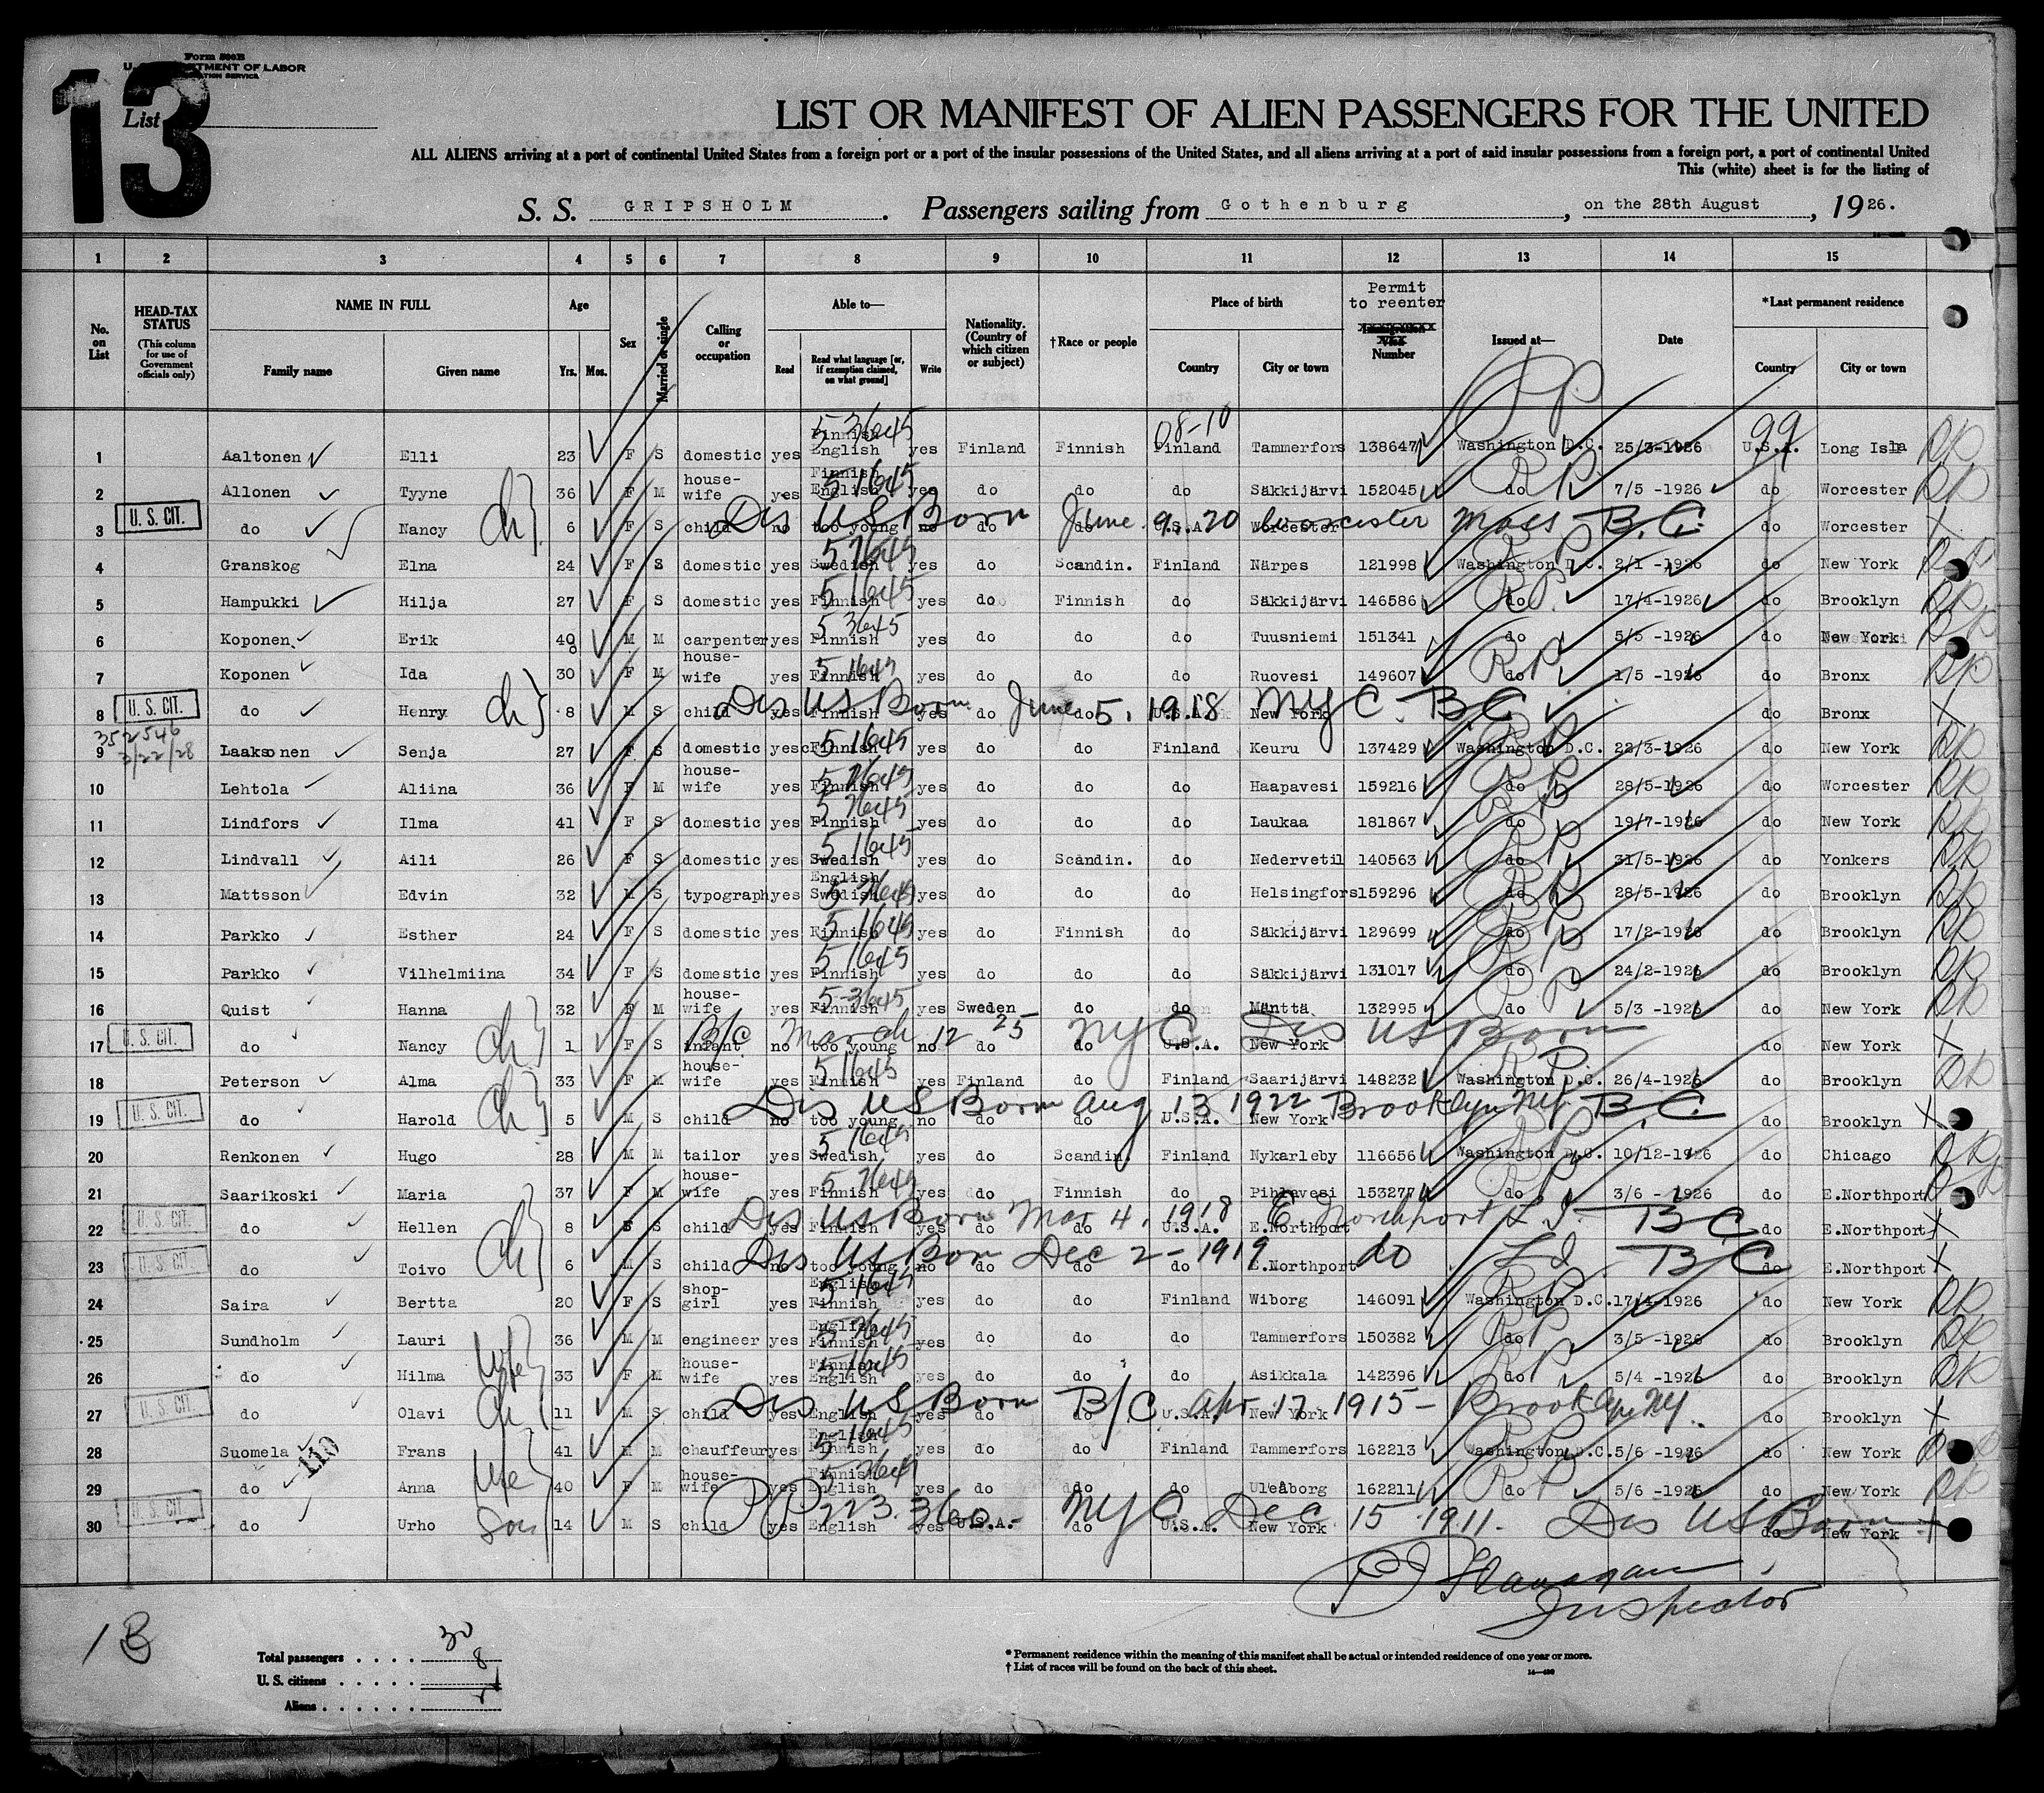 Form 500B
U. S. DEPARTMENT OF LABOR
13
List
LIST OR MANIFEST OF ALIEN PASSENGERS FOR THE UNITED
ALL ALIENS arriving at a port of continental United States from a foreign port or a port of the insular possessions of the United States, and all aliens arriving at a port of said insular possessions from a foreign port, a port of continental United
This (white) sheet is for the listing of
S. S. GRIPSHOLM. Passengers sailing from Gothenburg, on the 28th August, 1926.
1 2 3 4 5 6 7 8 9 10 11 12 13 14 15
No. on List
HEAD-TAX STATUS (This column for use of Government officials only)
NAME IN FULL Family name Given name
Age Yrs. Mos.
Sex
Married or single
Calling or occupation
Able to— Read Read what language [or, if exemption claimed, on what ground] Write
Nationality. (Country of which citizen or subject)
†Race or people
Place of birth Country City or town
Permit to reenter Number
Issued at—
Date
*Last permanent residence Country City or town
1 Aaltonen Elli 23 F S domestic yes Finnish English yes Finland Finnish Finland Tammerfors 138647 Washington D.C. 25/3-1926 U.S.A. Long Isla
2 Allonen Tyyne 36 F M house-wife yes Finnish English yes do do do Säkkijärvi 152045 do 7/5 -1926 do Worcester
3 U. S. CIT. do Nancy ch 6 F S child no too young no do do U.S.A. Worcester do Worcester
Dis US Born June 9. 20 Worcester Mass B.C.
4 Granskog Elna 24 F S domestic yes Swedish yes do Scandin. Finland Närpes 121998 Washington D.C. 2/1 -1926 do New York
5 Hampukki Hilja 27 F S domestic yes Finnish yes do Finnish do Säkkijärvi 146586 do 17/4-1926 do Brooklyn
6 Koponen Erik 40 M M carpenter yes Finnish yes do do do Tuusniemi 151341 do 5/5 -1926 do New York
7 Koponen Ida 30 F M house-wife yes Finnish yes do do do Ruovesi 149607 do 1/5 -1926 do Bronx
8 U. S. CIT. do Henry ch 8 M S child yes Finnish yes do do U.S.A. New York do Bronx
Dis US Born June 5, 1918 NYC. BC
352546
3/22/28
9 Laaksonen Senja 27 F S domestic yes Finnish yes do do Finland Keuru 137429 Washington D.C. 22/3-1926 do New York
10 Lehtola Aliina 36 F M house-wife yes Finnish yes do do do Haapavesi 159216 do 28/5-1926 do Worcester
11 Lindfors Ilma 41 F S domestic yes Finnish yes do do do Laukaa 181867 do 19/7-1926 do New York
12 Lindvall Aili 26 F S domestic yes Swedish yes do Scandin. do Nedervetil 140563 do 31/5-1926 do Yonkers
13 Mattsson Edvin 32 M S typograph yes English Swedish yes do do do Helsingfors 159296 do 28/5-1926 do Brooklyn
14 Parkko Esther 24 F S domestic yes Finnish yes do Finnish do Säkkijärvi 129699 do 17/2-1926 do Brooklyn
15 Parkko Vilhelmiina 34 F S domestic yes Finnish yes do do do Säkkijärvi 131017 do 24/2-1926 do Brooklyn
16 Quist Hanna 32 F M house-wife yes Finnish yes Sweden do do Mänttä 132995 do 5/3 -1926 do New York
17 U. S. CIT. do Nancy ch 1 F S infant no too young no do do U.S.A. New York do New York
B/C March 12 25 NYC Dis US Born
18 Peterson Alma 33 F M house-wife yes Finnish yes Finland do Finland Saarijärvi 148232 Washington D.C. 26/4-1926 do Brooklyn
19 U. S. CIT. do Harold ch 5 M S child no too young no do do U.S.A. New York do Brooklyn
Dis US Born Aug 13 1922 Brooklyn NY. B.C.
20 Renkonen Hugo 28 M M tailor yes Swedish yes do Scandin. Finland Nykarleby 116656 Washington D.C. 10/12-1926 do Chicago
21 Saarikoski Maria 37 F M house-wife yes Finnish yes do Finnish do Pihlavesi 153277 do 3/6 - 1926 do E.Northport
22 U. S. CIT. do Hellen ch 8 S child yes Finnish yes do do U.S.A. E.Northport do E.Northport
Dis US Born Mar 4, 1918 E Northport L.I. BC
23 U. S. CIT. do Toivo 6 M S child no too young no do do do E.Northport do E.Northport
Dis US Born Dec 2 - 1919 do L I. BC
24 Saira Bertta 20 F S shop-girl yes English Finnish yes do do Finland Wiborg 146091 Washington D.C. 17/4-1926 do New York
25 Sundholm Lauri 36 M M engineer yes English Finnish yes do do do Tammerfors 150382 do 3/5 -1926 do Brooklyn
26 do Hilma wife 33 F M house-wife yes Finnish English yes do do do Asikkala 142396 do 5/4 -1926 do Brooklyn
27 U. S. CIT. do Olavi ch 11 M S child yes English yes do do U.S.A. New York do Brooklyn
Dis US Born B/C Apr 17 1915 - Brooklyn NY.
28 Suomela 110 Frans 41 M M chauffeur yes English Finnish yes do do Finland Tammerfors 162213 Washington D.C. 5/6 -1926 do New York
29 do Anna wife 40 F M house-wife yes Finnish English yes do do do Uleåborg 162211 do 5/6 -1926 do New York
30 U. S. CIT. do Urho Son 14 M S child yes English yes U.S.A.- do U.S.A. New York do New York
PP 223.360 NYC Dec 15 1911. Dis US Born
Inspector
13
Total passengers . . . . 30
U. S. citizens . . . . . 8
Aliens . . . . . .
* Permanent residence within the meaning of this manifest shall be actual or intended residence of one year or more.
† List of races will be found on the back of this sheet.